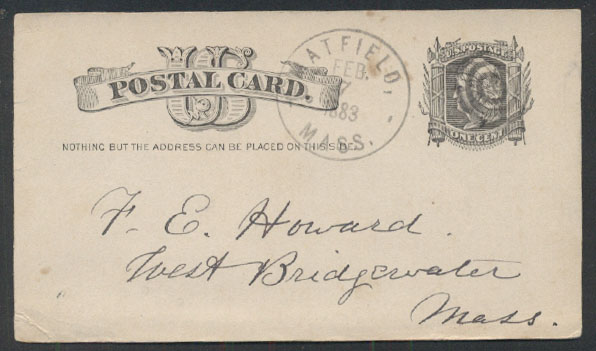 US
POSTAL CARD.
NOTHING BUT THE ADDRESS CAN BE PLACED ON THIS SIDE.
ATFIELD,
FEB.
7
1883
MASS.
U.S. POSTAGE
ONE CENT
F. E. Howard.
West Bridgewater
Mass.